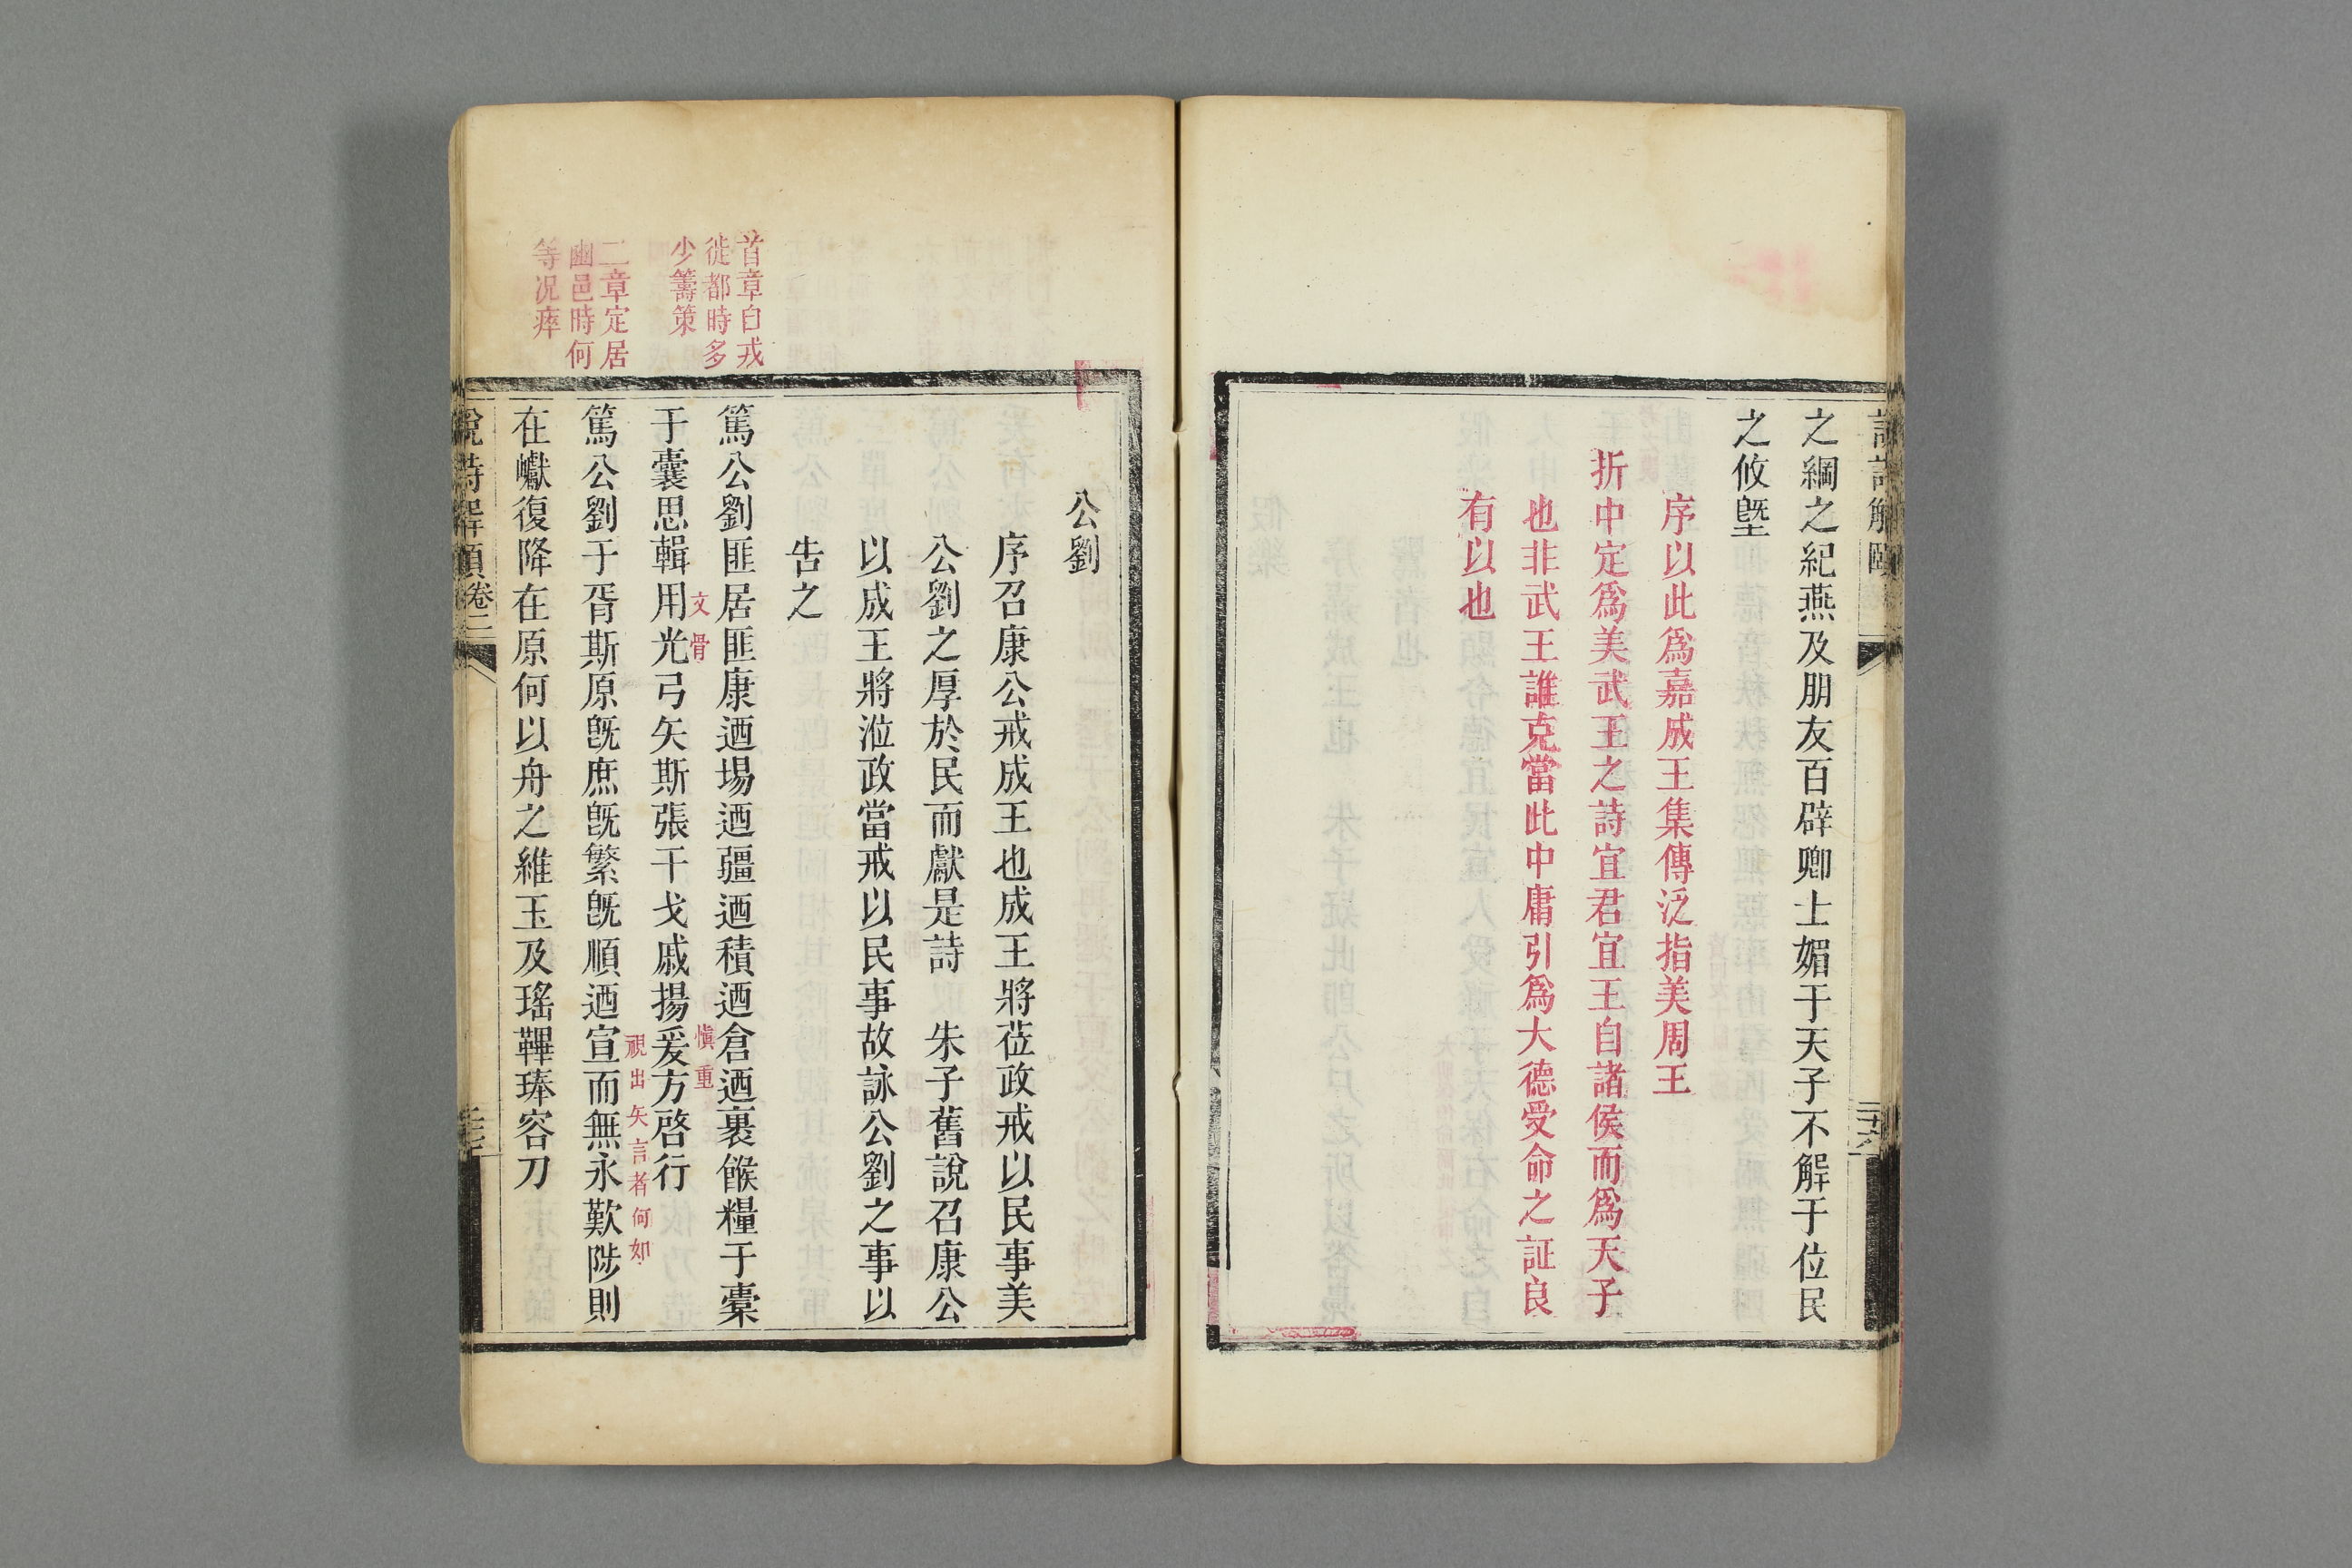 之綱之紀燕及朋友百辟卿士媚于天子不解于位民
之攸墍
序以此爲嘉成王集傳泛指美周王
折中定爲美武王之詩宜君宜王自諸侯而爲天子
也非武王誰克當此中庸引爲大德受命之証良
有以也
公劉
序召康公戒成王也成王將莅政戒以民事美
公劉之厚於民而獻是詩 朱子舊說召康公
以成王將涖政當戒以民事故詠公劉之事以
告之
首章自戎
徙都時多
少籌策
篤公劉匪居匪康迺埸迺疆迺積迺倉迺裹餱糧于橐
文骨
慎重
于囊思輯用光弓矢斯張干戈戚揚爰方啓行
二章定居
豳邑時何
等况瘁
視出矢言者何如
篤公劉于胥斯原旣庶旣繁旣順迺宣而無永歎陟則
在巘復降在原何以舟之維玉及瑤鞸琫容刀
說詩解頤卷二